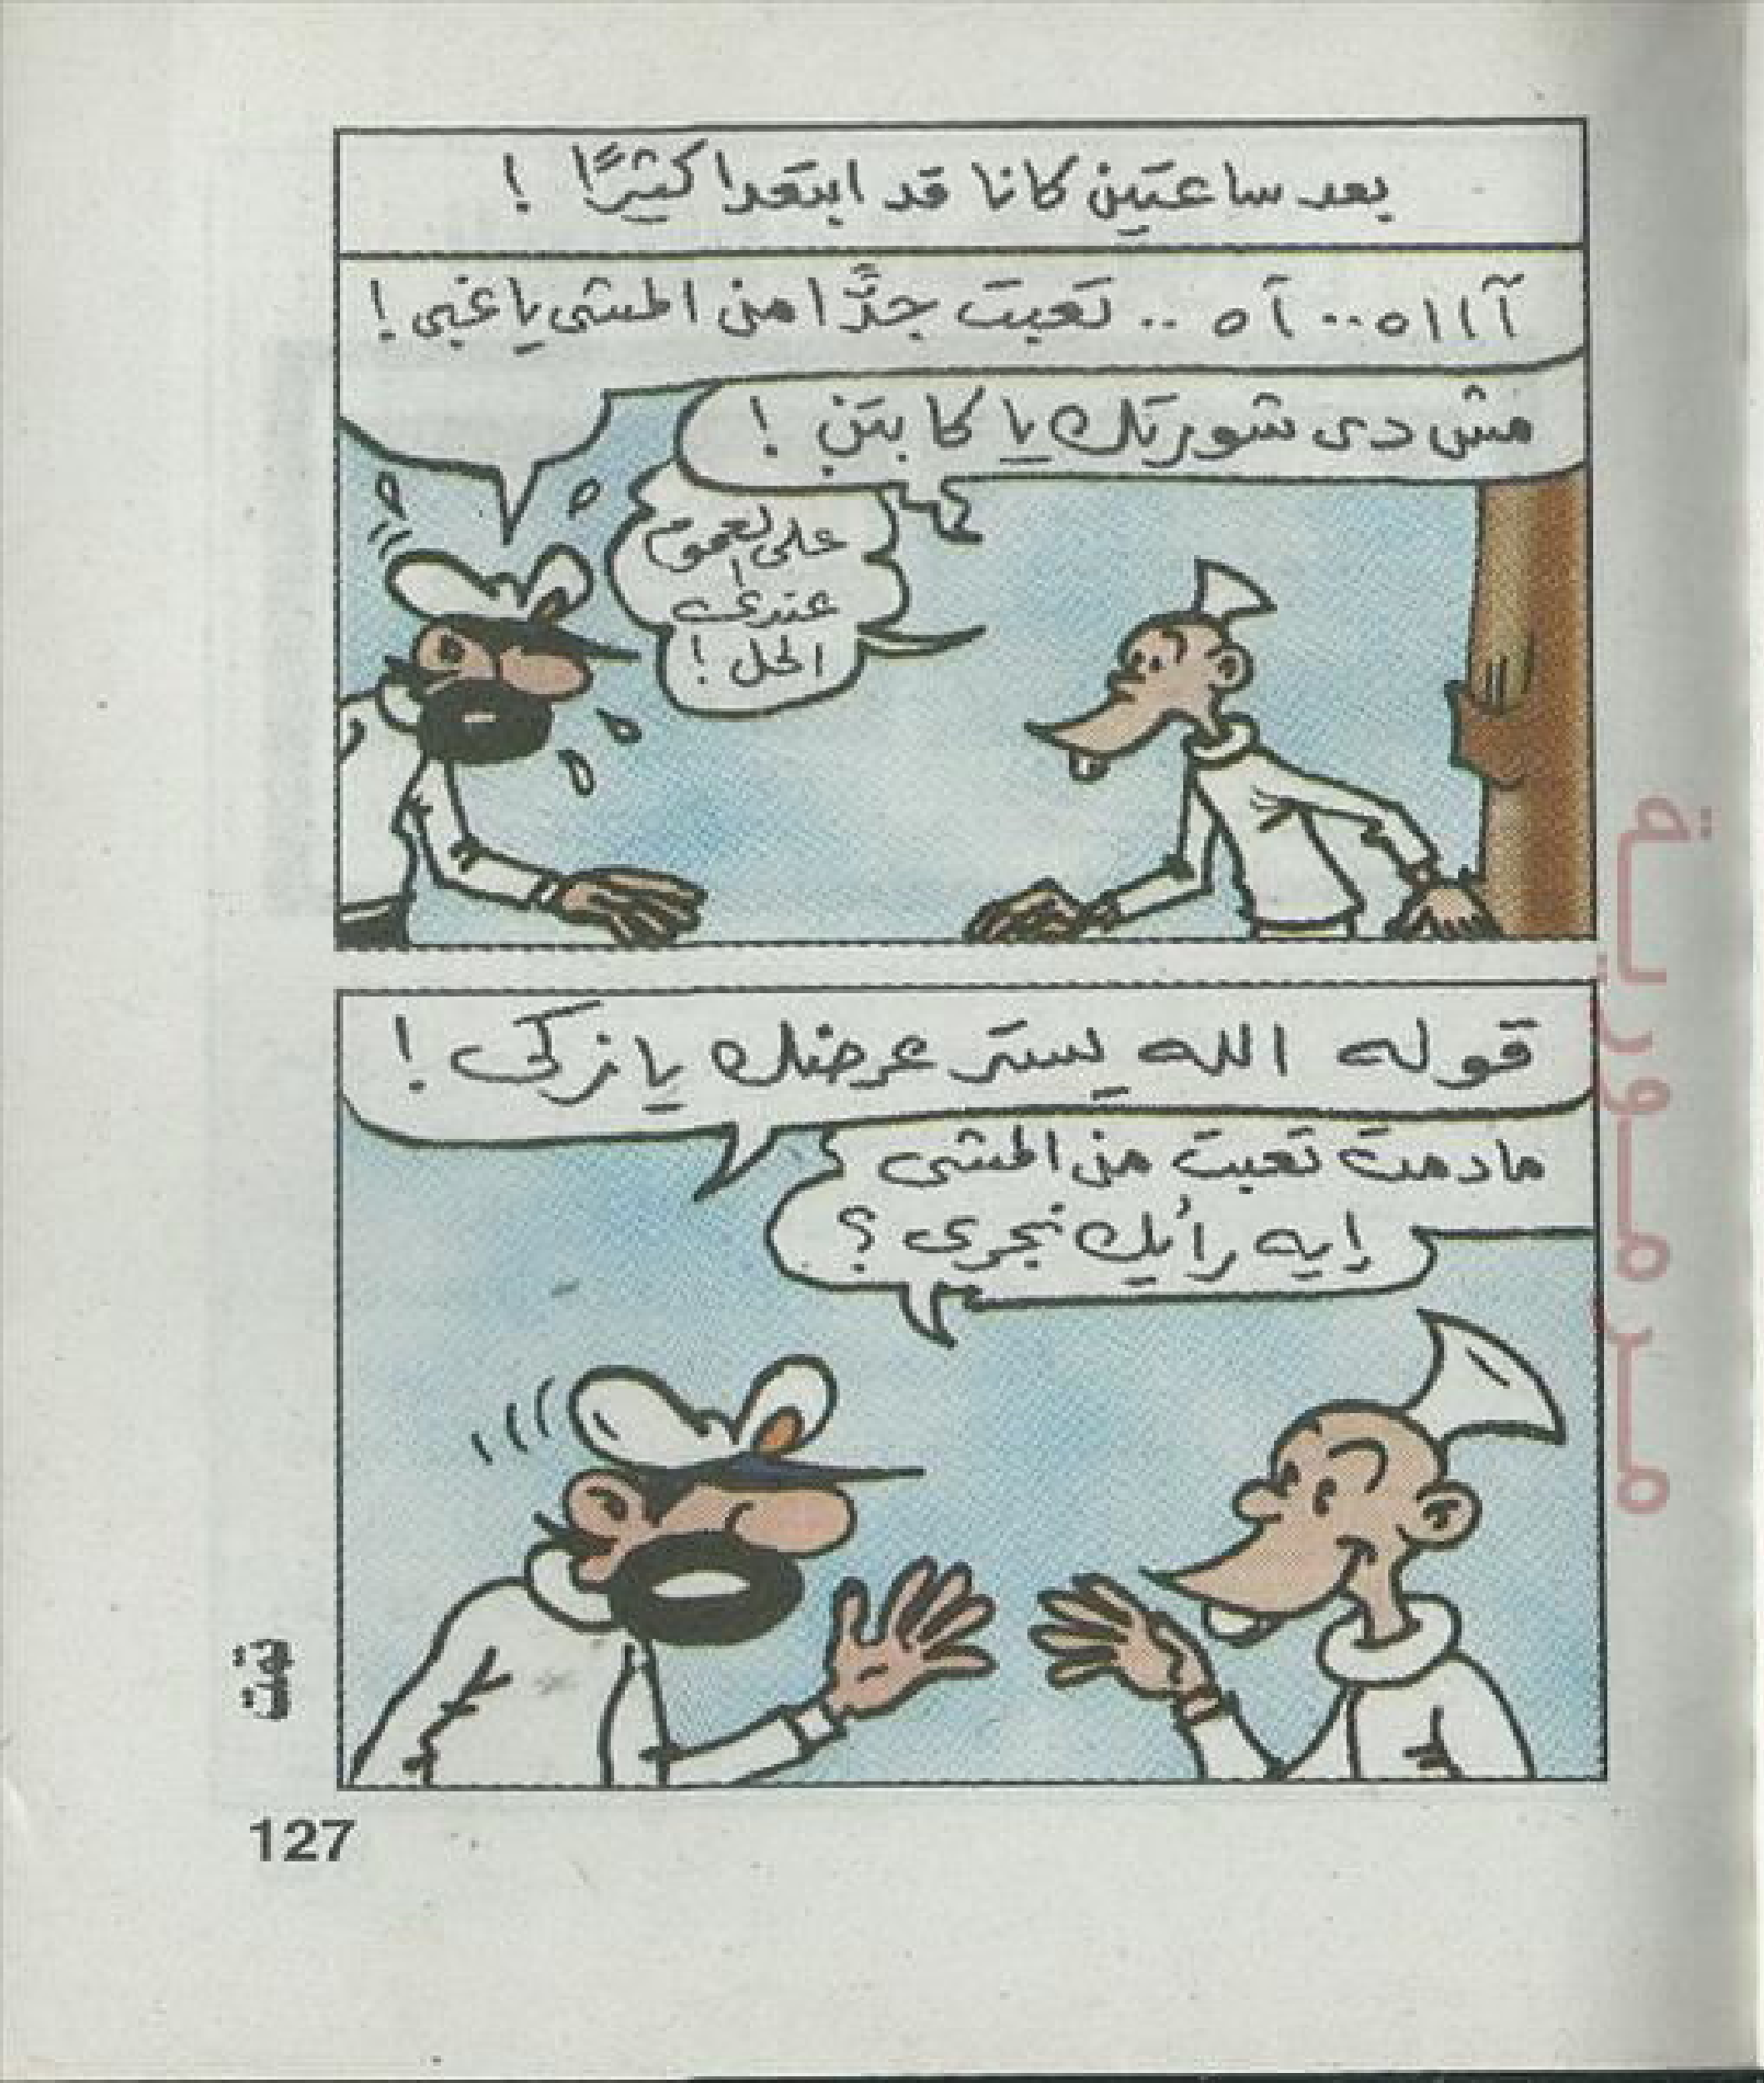 بعد ساعتين كانا قد ابتعدا كثيرًا !
آااااه .. آه .. تعبت جدًّا من المشى يا غبى !
مش دى شورتك يا كابتن !
على لعموم
عندى
الحل !
قوله الله يستر عرضك يا زكى !
مادمت تعبت من المشى
إيه رأيك نجرى ؟
تمت
127
مرمورية